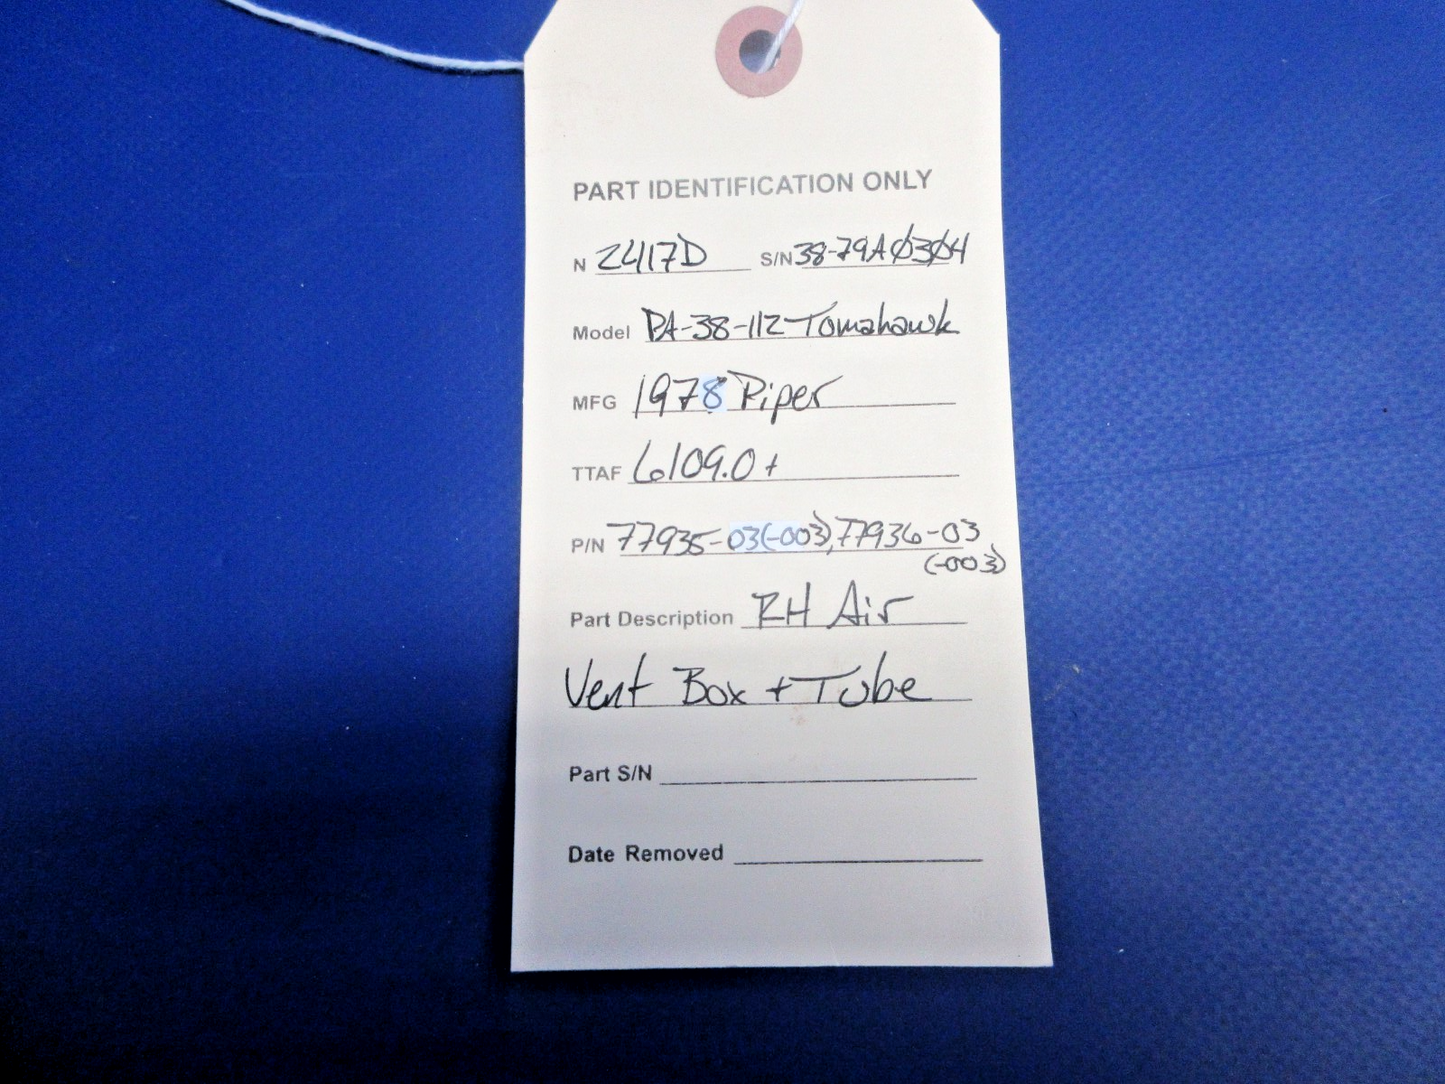 PART IDENTIFICATION ONLY
N 2417D S/N 38-79AØ3Ø4
Model PA-38-112 Tomahawk
MFG 1978 Piper
TTAF 6109.0+
P/N 77935-03(-003), 77936-03
(-003)
Part Description RH Air
Vent Box + Tube
Part S/N
Date Removed